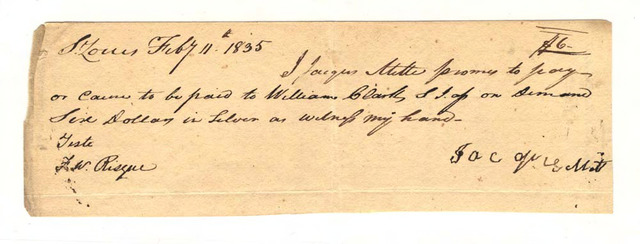 St Louis Feby 11th 1835 $6-
I Jacques Mette promes to pay
or cause to be paid to William Clark S I af on Demand
Six Dollars in Silver as witness my hand-
Teste
F. W. Risque Jacques Mett